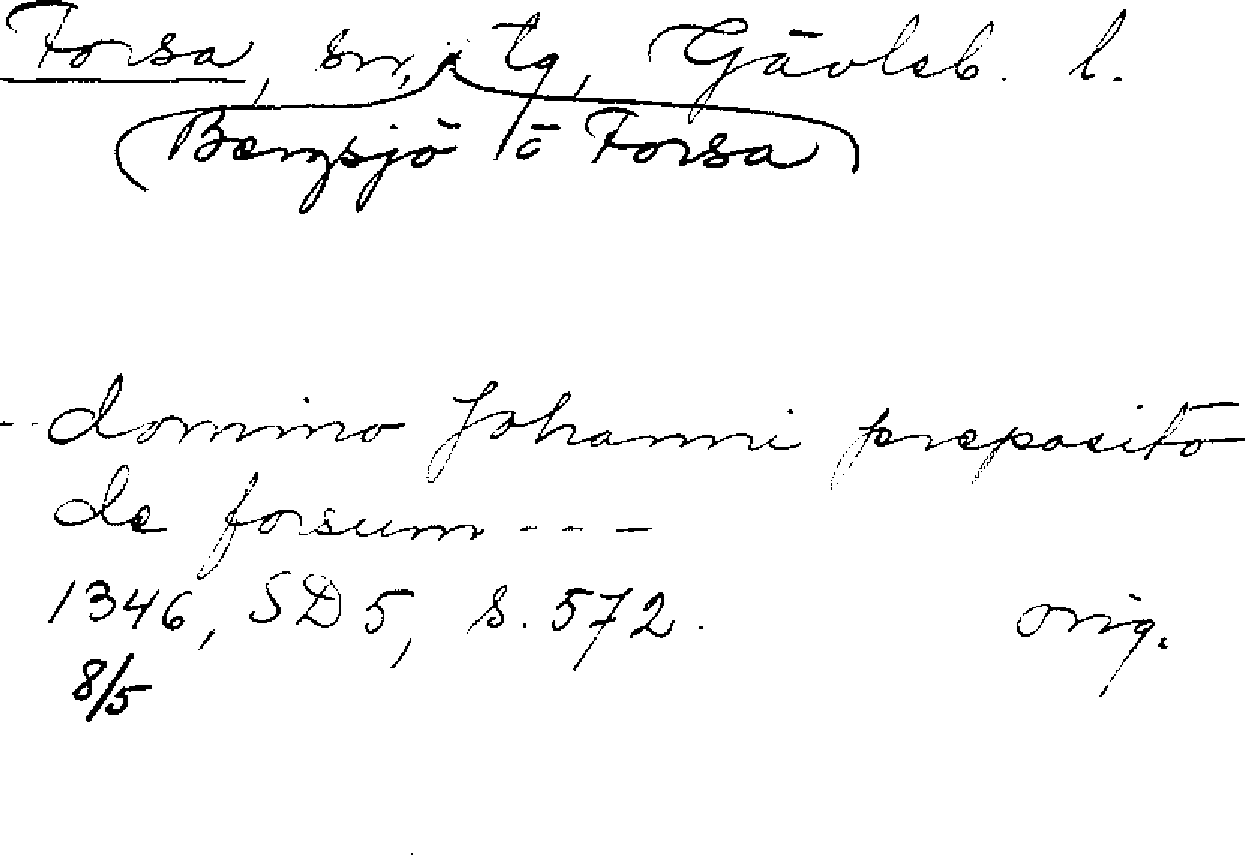 Forsa, sn, i tg, Gävleb. l.
Bergsjö o Forsa
- domino Johanni preposito
de forsum - - -
1346, SD 5, s. 572. orig.
8/5